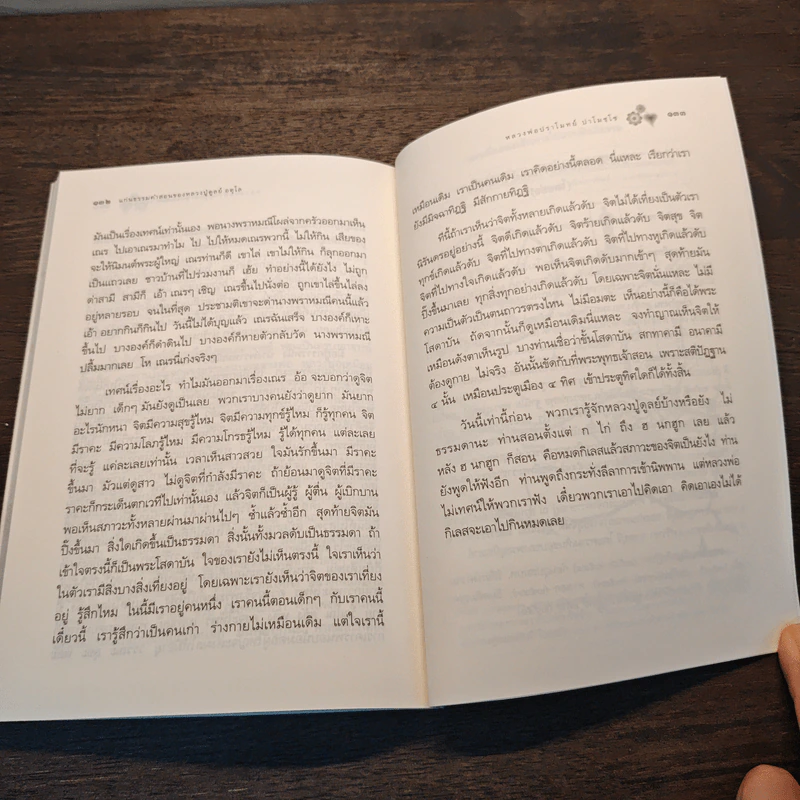 ๑๓๒ แก่นธรรมคำสอนของหลวงปู่ดูลย์ อตุโล
มันเป็นเรื่องเทศน์เท่านั้นเอง พอนางพราหมณีโผล่จากครัวออกมาเห็น
เณร ไปเอาเณรมาทำไม ไป ไปให้หมดเณรพวกนี้ ไม่ให้กิน เสียของ
จะให้นิมนต์พระผู้ใหญ่ เณรท่านก็ดี เขาไล่ เขาไม่ให้กิน ก็ลุกออกมา
เป็นแถวเลย ชาวบ้านที่ไปร่วมงานก็ เฮ้ย ทำอย่างนี้ได้ยังไง ไม่ถูก
ด่าสามี สามีก็ เอ้า เณรๆ เชิญ เณรขึ้นไปนั่งต่อ ถูกเขาไล่ขึ้นไล่ลง
อยู่หลายรอบ จนในที่สุด ประชามติเขาจะด่านางพราหมณีคนนี้แล้ว
เอ้า อยากกินก็กินไป วันนี้ไม่ได้บุญแล้ว เณรฉันเสร็จ บางองค์ก็เหาะ
ขึ้นไป บางองค์ก็ดำดินไป บางองค์ก็หายตัวกลับวัด นางพราหมณี
ปลื้มมากเลย โห เณรนี่เก่งจริงๆ
เทศน์เรื่องอะไร ทำไมมันออกมาเรื่องเณร อ้อ จะบอกว่าดูจิต
ไม่ยาก เด็กๆ มันยังดูเป็นเลย พวกเราบางคนยังว่าดูยาก มันยาก
อะไรนักหนา จิตมีความสุขรู้ไหม จิตมีความทุกข์รู้ไหม ก็รู้ทุกคน จิต
มีราคะ มีความโลภรู้ไหม มีความโกรธรู้ไหม รู้ได้ทุกคน แต่ละเลย
ที่จะรู้ แค่ละเลยเท่านั้น เวลาเห็นสาวสวย ใจมันรักขึ้นมา มีราคะ
ขึ้นมา มัวแต่ดูสาว ไม่ดูจิตที่กำลังมีราคะ ถ้าย้อนมาดูจิตที่มีราคะ
ราคะก็กระเด็นตกเวทีไปเท่านั้นเอง แล้วจิตก็เป็นผู้รู้ ผู้ตื่น ผู้เบิกบาน
พอเห็นสภาวะทั้งหลายผ่านมาผ่านไปๆ ซ้ำแล้วซ้ำอีก สุดท้ายจิตมัน
ปิ๊งขึ้นมา สิ่งใดเกิดขึ้นเป็นธรรมดา สิ่งนั้นทั้งมวลดับเป็นธรรมดา ถ้า
เข้าใจตรงนี้ก็เป็นพระโสดาบัน ใจของเรายังไม่เห็นตรงนี้ ใจเราเห็นว่า
ในตัวเรามีสิ่งบางสิ่งเที่ยงอยู่ โดยเฉพาะเรายังเห็นว่าจิตของเราเที่ยง
อยู่ รู้สึกไหม ในนี้มีเราอยู่คนหนึ่ง เราคนนี้ตอนเด็กๆ กับเราคนนี้
เดี๋ยวนี้ เรารู้สึกว่าเป็นคนเก่า ร่างกายไม่เหมือนเดิม แต่ใจเรานี้
หลวงพ่อปราโมทย์ ปาโมชฺโช ๑๓๓
เหมือนเดิม เราเป็นคนเดิม เราคิดอย่างนี้ตลอด นี่แหละ เรียกว่าเรา
ยังมีมิจฉาทิฏฐิ มีสักกายทิฏฐิ
ทีนี้ถ้าเราเห็นว่าจิตทั้งหลายเกิดแล้วดับ จิตไม่ได้เที่ยงเป็นตัวเรา
นิรันดรอยู่อย่างนี้ จิตดีเกิดแล้วดับ จิตร้ายเกิดแล้วดับ จิตสุข จิต
ทุกข์เกิดแล้วดับ จิตที่ไปทางตาเกิดแล้วดับ จิตที่ไปทางหูเกิดแล้วดับ
จิตที่ไปทางใจเกิดแล้วดับ พอเห็นจิตเกิดดับมากเข้าๆ สุดท้ายมัน
ปิ๊งขึ้นมาเลย ทุกสิ่งทุกอย่างเกิดแล้วดับ โดยเฉพาะจิตนั่นแหละ ไม่มี
ความเป็นตัวเป็นตนถาวรตรงไหน ไม่มีอมตะ เห็นอย่างนี้ก็คือได้พระ
โสดาบัน ถัดจากนั้นก็ดูเหมือนเดิมนี่แหละ จงทำญาณเห็นจิตให้
เหมือนดังตาเห็นรูป บางท่านเชื่อว่าชั้นโสดาบัน สกทาคามี อนาคามี
ต้องดูกาย ไม่จริง อันนั้นขัดกับที่พระพุทธเจ้าสอน เพราะสติปัฏฐาน
๔ นั้น เหมือนประตูเมือง ๔ ทิศ เข้าประตูทิศใดก็ได้ทั้งสิ้น
วันนี้เท่านี้ก่อน พวกเรารู้จักหลวงปู่ดูลย์บ้างหรือยัง ไม่
ธรรมดานะ ท่านสอนตั้งแต่ ก ไก่ ถึง ฮ นกฮูก เลย แล้ว
หลัง ฮ นกฮูก ก็สอน คือหมดกิเลสแล้วสภาวะของจิตเป็นยังไง ท่าน
ยังพูดให้ฟังอีก ท่านพูดถึงกระทั่งลีลาการเข้านิพพาน แต่หลวงพ่อ
ไม่เทศน์ให้พวกเราฟัง เดี๋ยวพวกเราเอาไปคิดเอา คิดเอาเองไม่ได้
กิเลสจะเอาไปกินหมดเลย